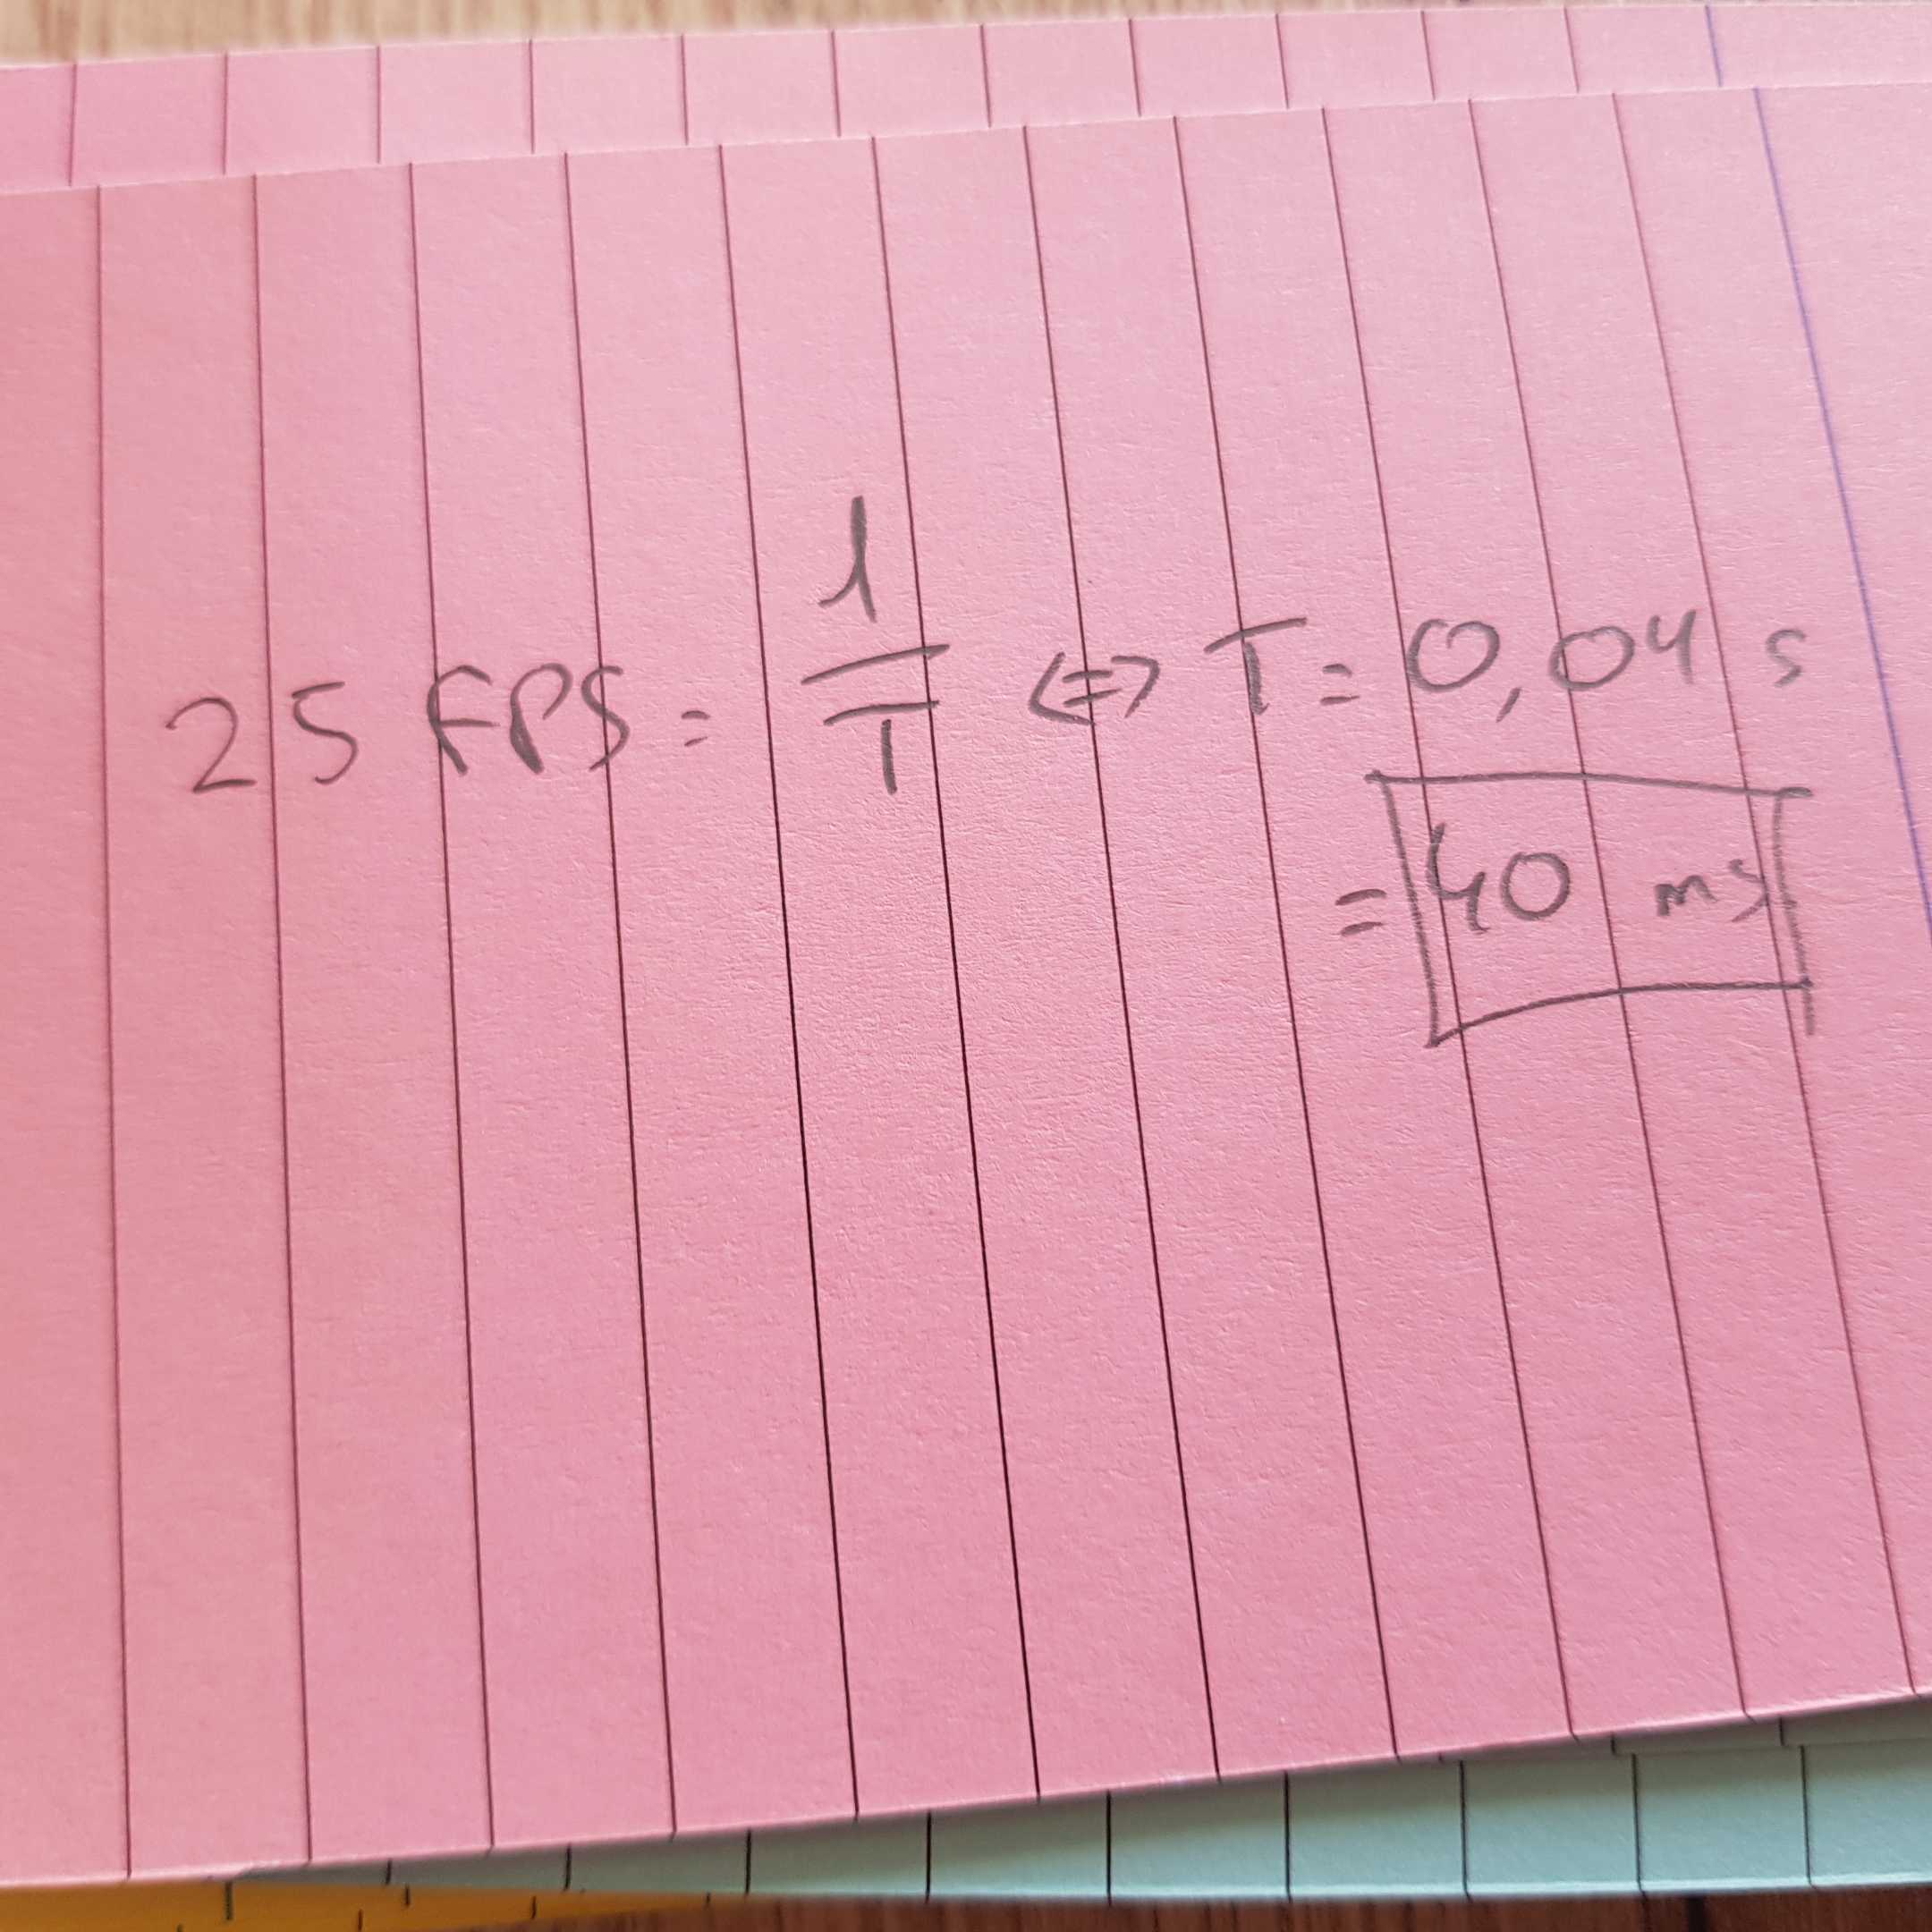 25 FPS = 1/T <=> T = 0,04 s
= 40 ms